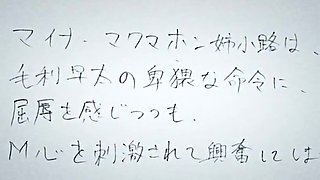 マイナ・マクマホン姉小路は、
毛利早太の卑猥な命令に、
屈辱を感じつつも、
M心を刺激されて興奮しては